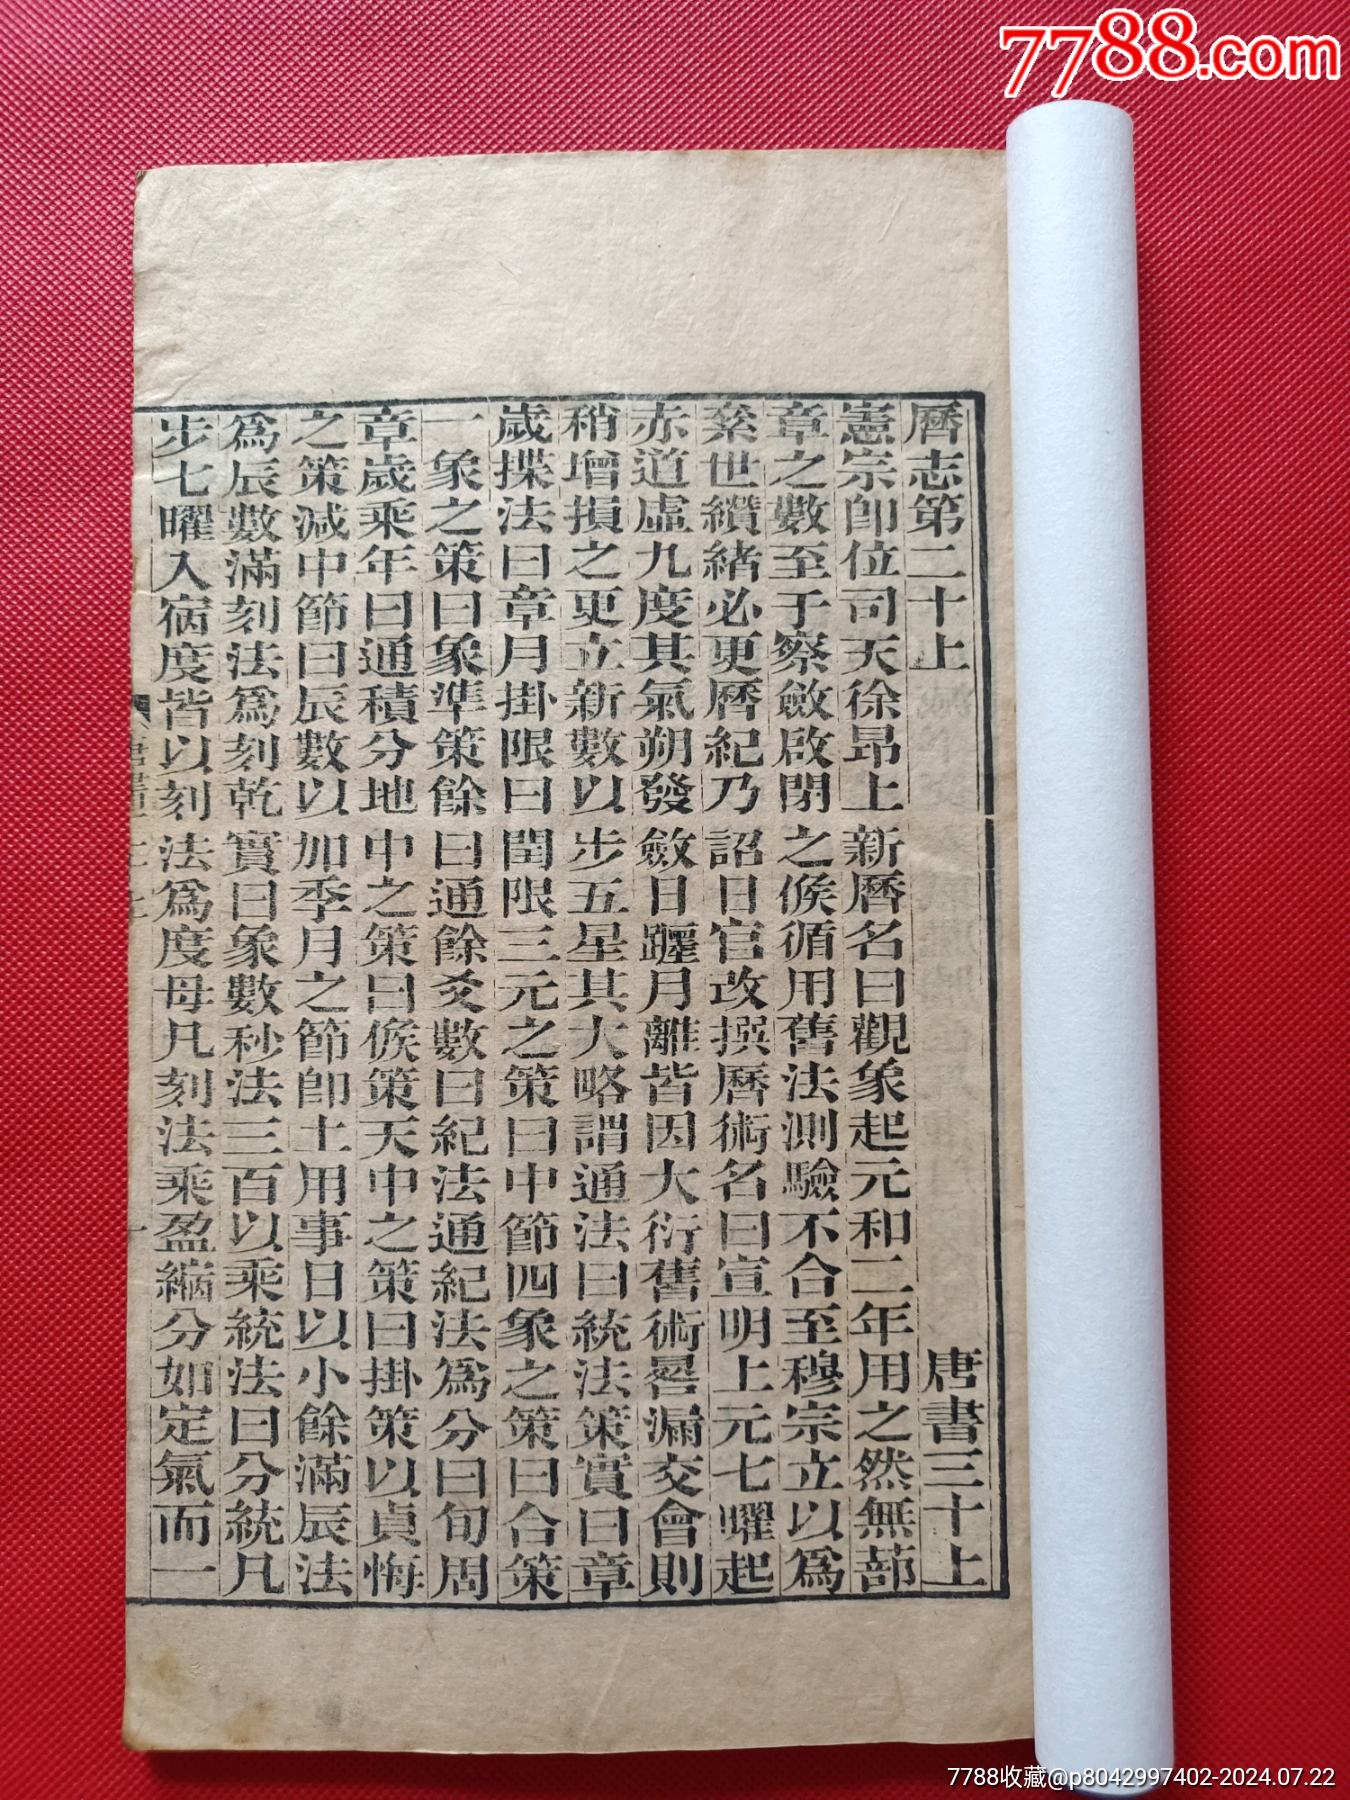 7788.com
曆志第二十上 唐書三十上
憲宗卽位司天徐昂上新曆名曰觀象起元和二年用之然無蔀
章之數至于察斂啟閉之候循用舊法測驗不合至穆宗立以爲
絫世纘緒必更曆紀乃詔日官改撰曆術名曰宣明上元七曜起
赤道虛九度其氣朔發斂日躔月離皆因大衍舊術晷漏交會則
稍增損之更立新數以步五星其大略謂通法曰統法策實曰章
歲揲法曰章月掛限曰閏限三元之策曰中節四象之策曰合策
一象之策曰象準策餘曰通餘爻數曰紀法通紀法爲分曰旬周
章歲乘年曰通積分地中之策曰候策天中之策曰掛策以貞悔
之策減中節曰辰數以加季月之節卽土用事日以小餘滿辰法
爲辰數滿刻法爲刻乾實曰象數秒法三百以乘統法曰分統凡
步七曜入宿度皆以刻法爲度母凡刻法乘盈縮分如定氣而一
7788收藏@p8042997402-2024.07.22